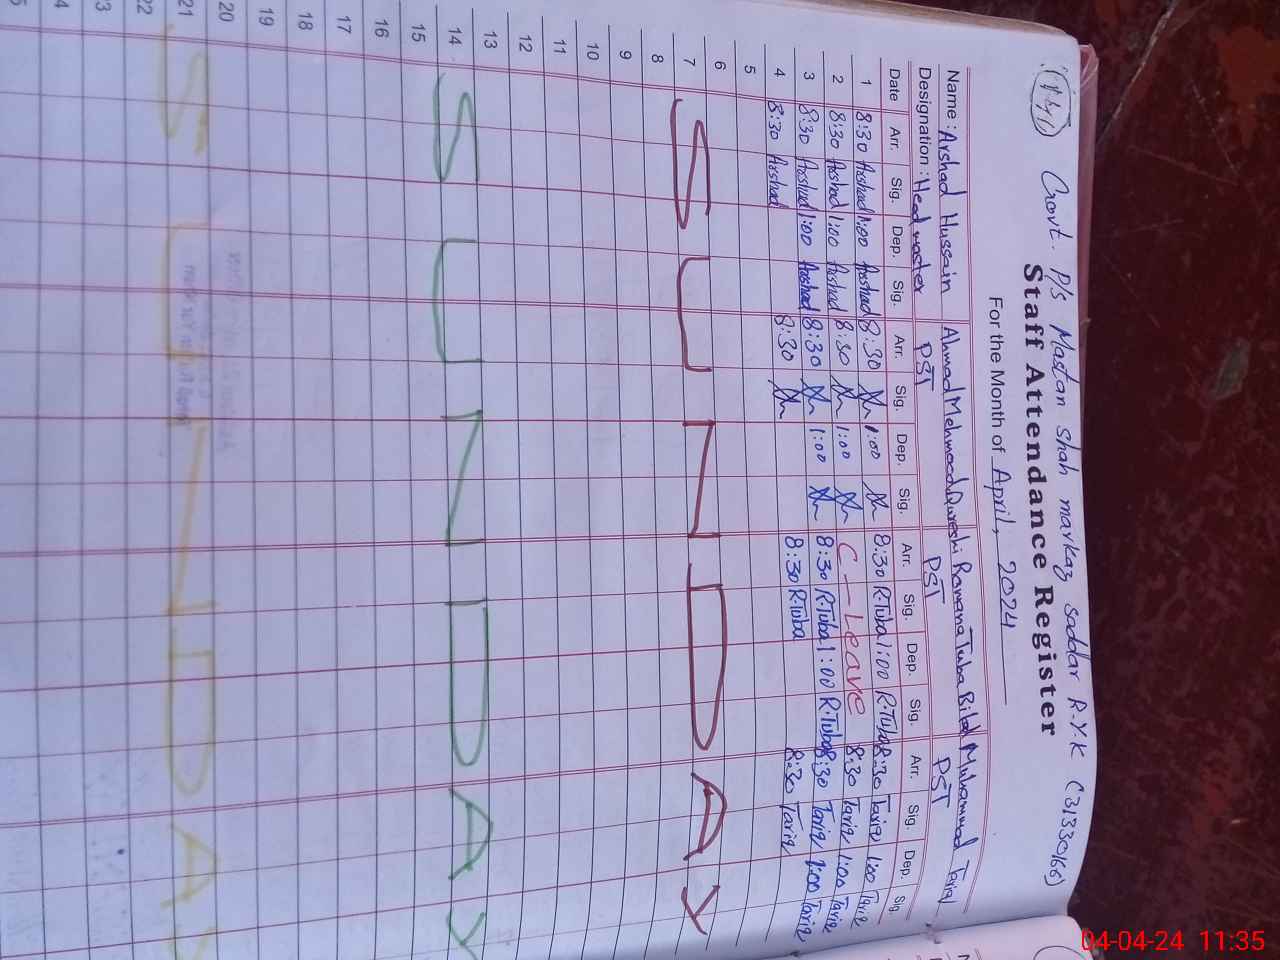 Govt. P/S Mastan Shah markaz saddar R.Y.K (31330166)
Staff Attendance Register
For the Month of April, 2024
Name: Arshad Hussain Ahmad Mehmood Qureshi Ramana Tuba Bilal Muhammad Tariq
Designation: Head master PST PST PST
Date Arr. Sig. Dep. Sig. Arr. Sig. Dep. Sig. Arr. Sig. Dep. Sig. Arr. Sig. Dep. Sig.
1 8:30 Arshad 1:00 Arshad 8:30 1:00 8:30 R.Tuba 1:00 R.Tuba 8:30 Tariq 1:00 Tariq
2 8:30 Arshad 1:00 Arshad 8:30 1:00 C - Leave 8:30 Tariq 1:00 Tariq
3 8:30 Arshad 1:00 Arshad 8:30 1:00 8:30 R.Tuba 1:00 R.Tuba 8:30 Tariq 1:00 Tariq
4 8:30 Arshad 8:30 8:30 R.Tuba 8:30 Tariq
5
6
7 SUNDAY
8
9
10
11
12
13
14 SUNDAY
15
16
17
18
19
20
21 SUNDAY
22
04-04-24 11:35